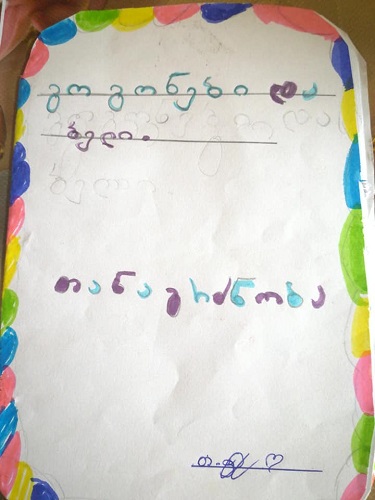 გოგონები და
ბედი.
თანაგრძნობა